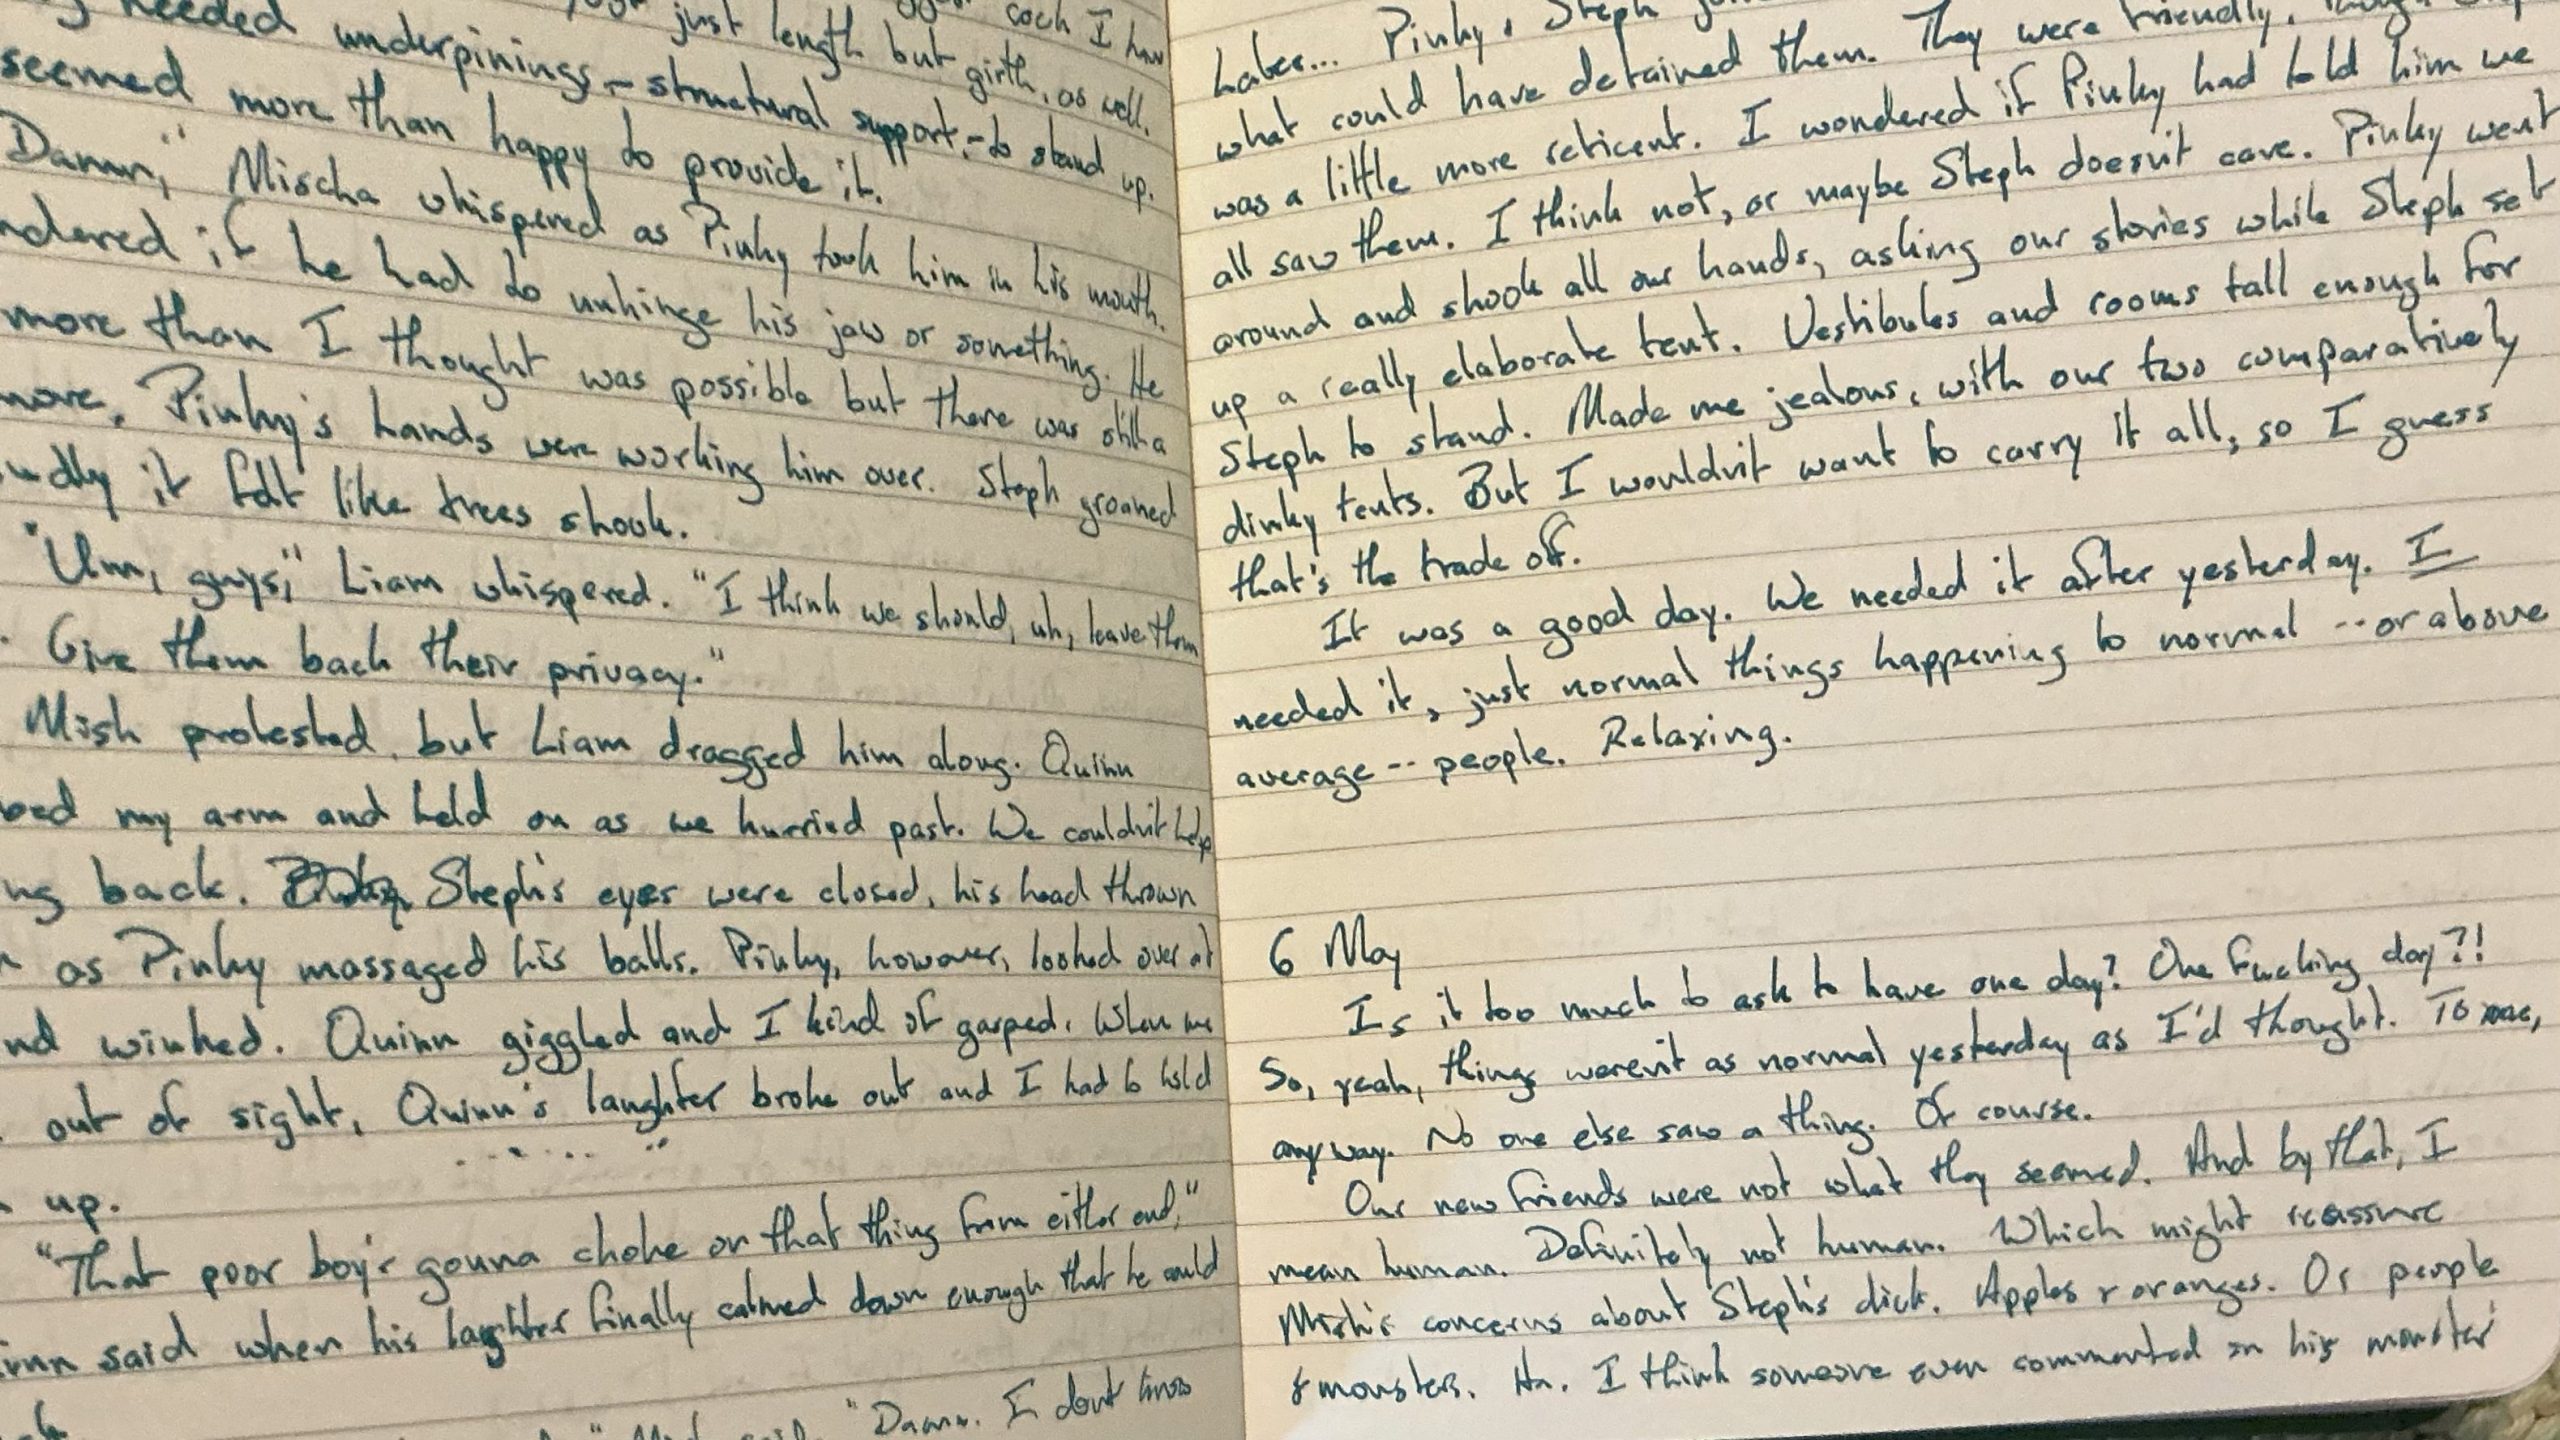 needed underpinings – structural support, – to stand up.
just length but girth, as well.
cock I have
seemed more than happy to provide it.
Damn," Mischa whispered as Pinky took him in his mouth.
ndered if he had to unhinge his jaw or something. He
more than I thought was possible but there was still a
more. Pinky's hands were working him over. Steph groaned
udly it felt like trees shook.
"Um, guys," Liam whispered. "I think we should, uh, leave them
. Give them back their privacy."
Mish protested, but Liam dragged him along. Quinn
bed my arm and held on as we hurried past. We couldn't help
ng back. Steph's eyes were closed, his head thrown
as Pinky massaged his balls. Pinky, however, looked over at
nd winked. Quinn giggled and I kind of gasped. When we
out of sight, Quinn's laughter broke out and I had to hold
up.
"That poor boy's gonna choke on that thing from either end,"
inn said when his laughter finally calmed down enough that he could
said. "Damn. I don't know
Later... Pinky & Steph
what could have detained them. They were friendly, though
was a little more reticent. I wondered if Pinky had told him we
all saw them. I think not, or maybe Steph doesn't care. Pinky went
around and shook all our hands, asking our stories while Steph set
up a really elaborate tent. Vestibules and rooms tall enough for
Steph to stand. Made me jealous, with our two comparatively
dinky tents. But I wouldn't want to carry it all, so I guess
that's the trade off.
It was a good day. We needed it after yesterday. I
needed it, just normal things happening to normal -- or above
average -- people. Relaxing.
6 May
Is it too much to ask to have one day? One fucking day?!
So, yeah, things weren't as normal yesterday as I'd thought. To me,
anyway. No one else saw a thing. Of course.
Our new friends were not what they seemed. And by that, I
mean human. Definitely not human. Which might reassure
Mish's concerns about Steph's dick. Apples & oranges. Or people
& monsters. Ha. I think someone even commented on his monster